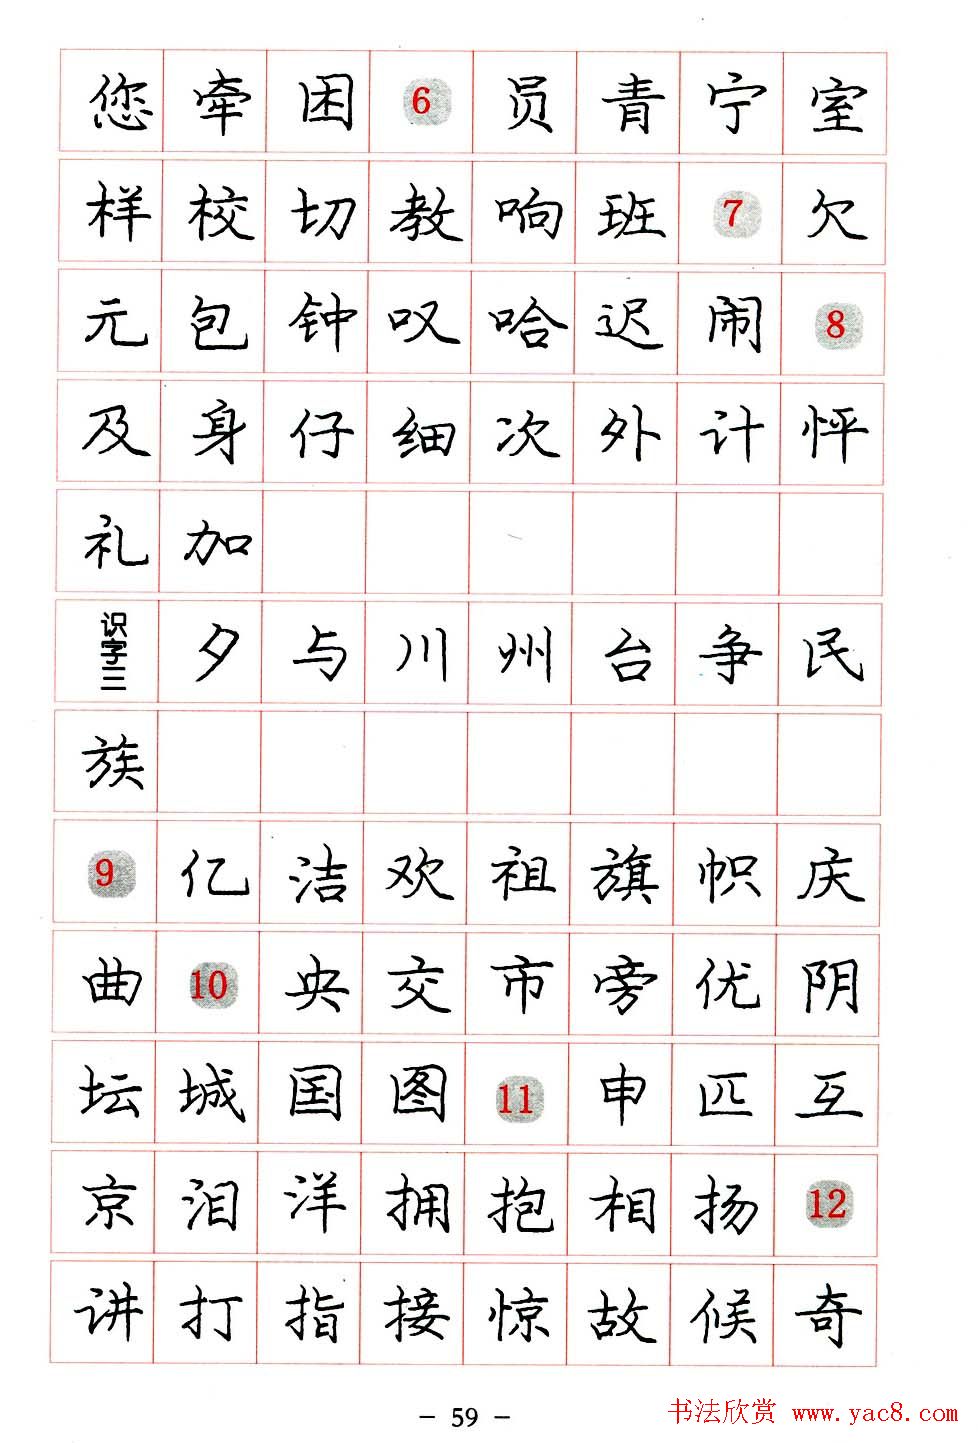 您牵困6员青宁室
样校切教响班7欠
元包钟叹哈迟闹8
及身仔细次外计怦
礼加
识字三夕与川州台争民
族
9亿洁欢祖旗帜庆
曲10央交市旁优阴
坛城国图11申匹互
京泪洋拥抱相扬12
讲打指接惊故候奇
– 59 –
书法欣赏 www.yac8.com